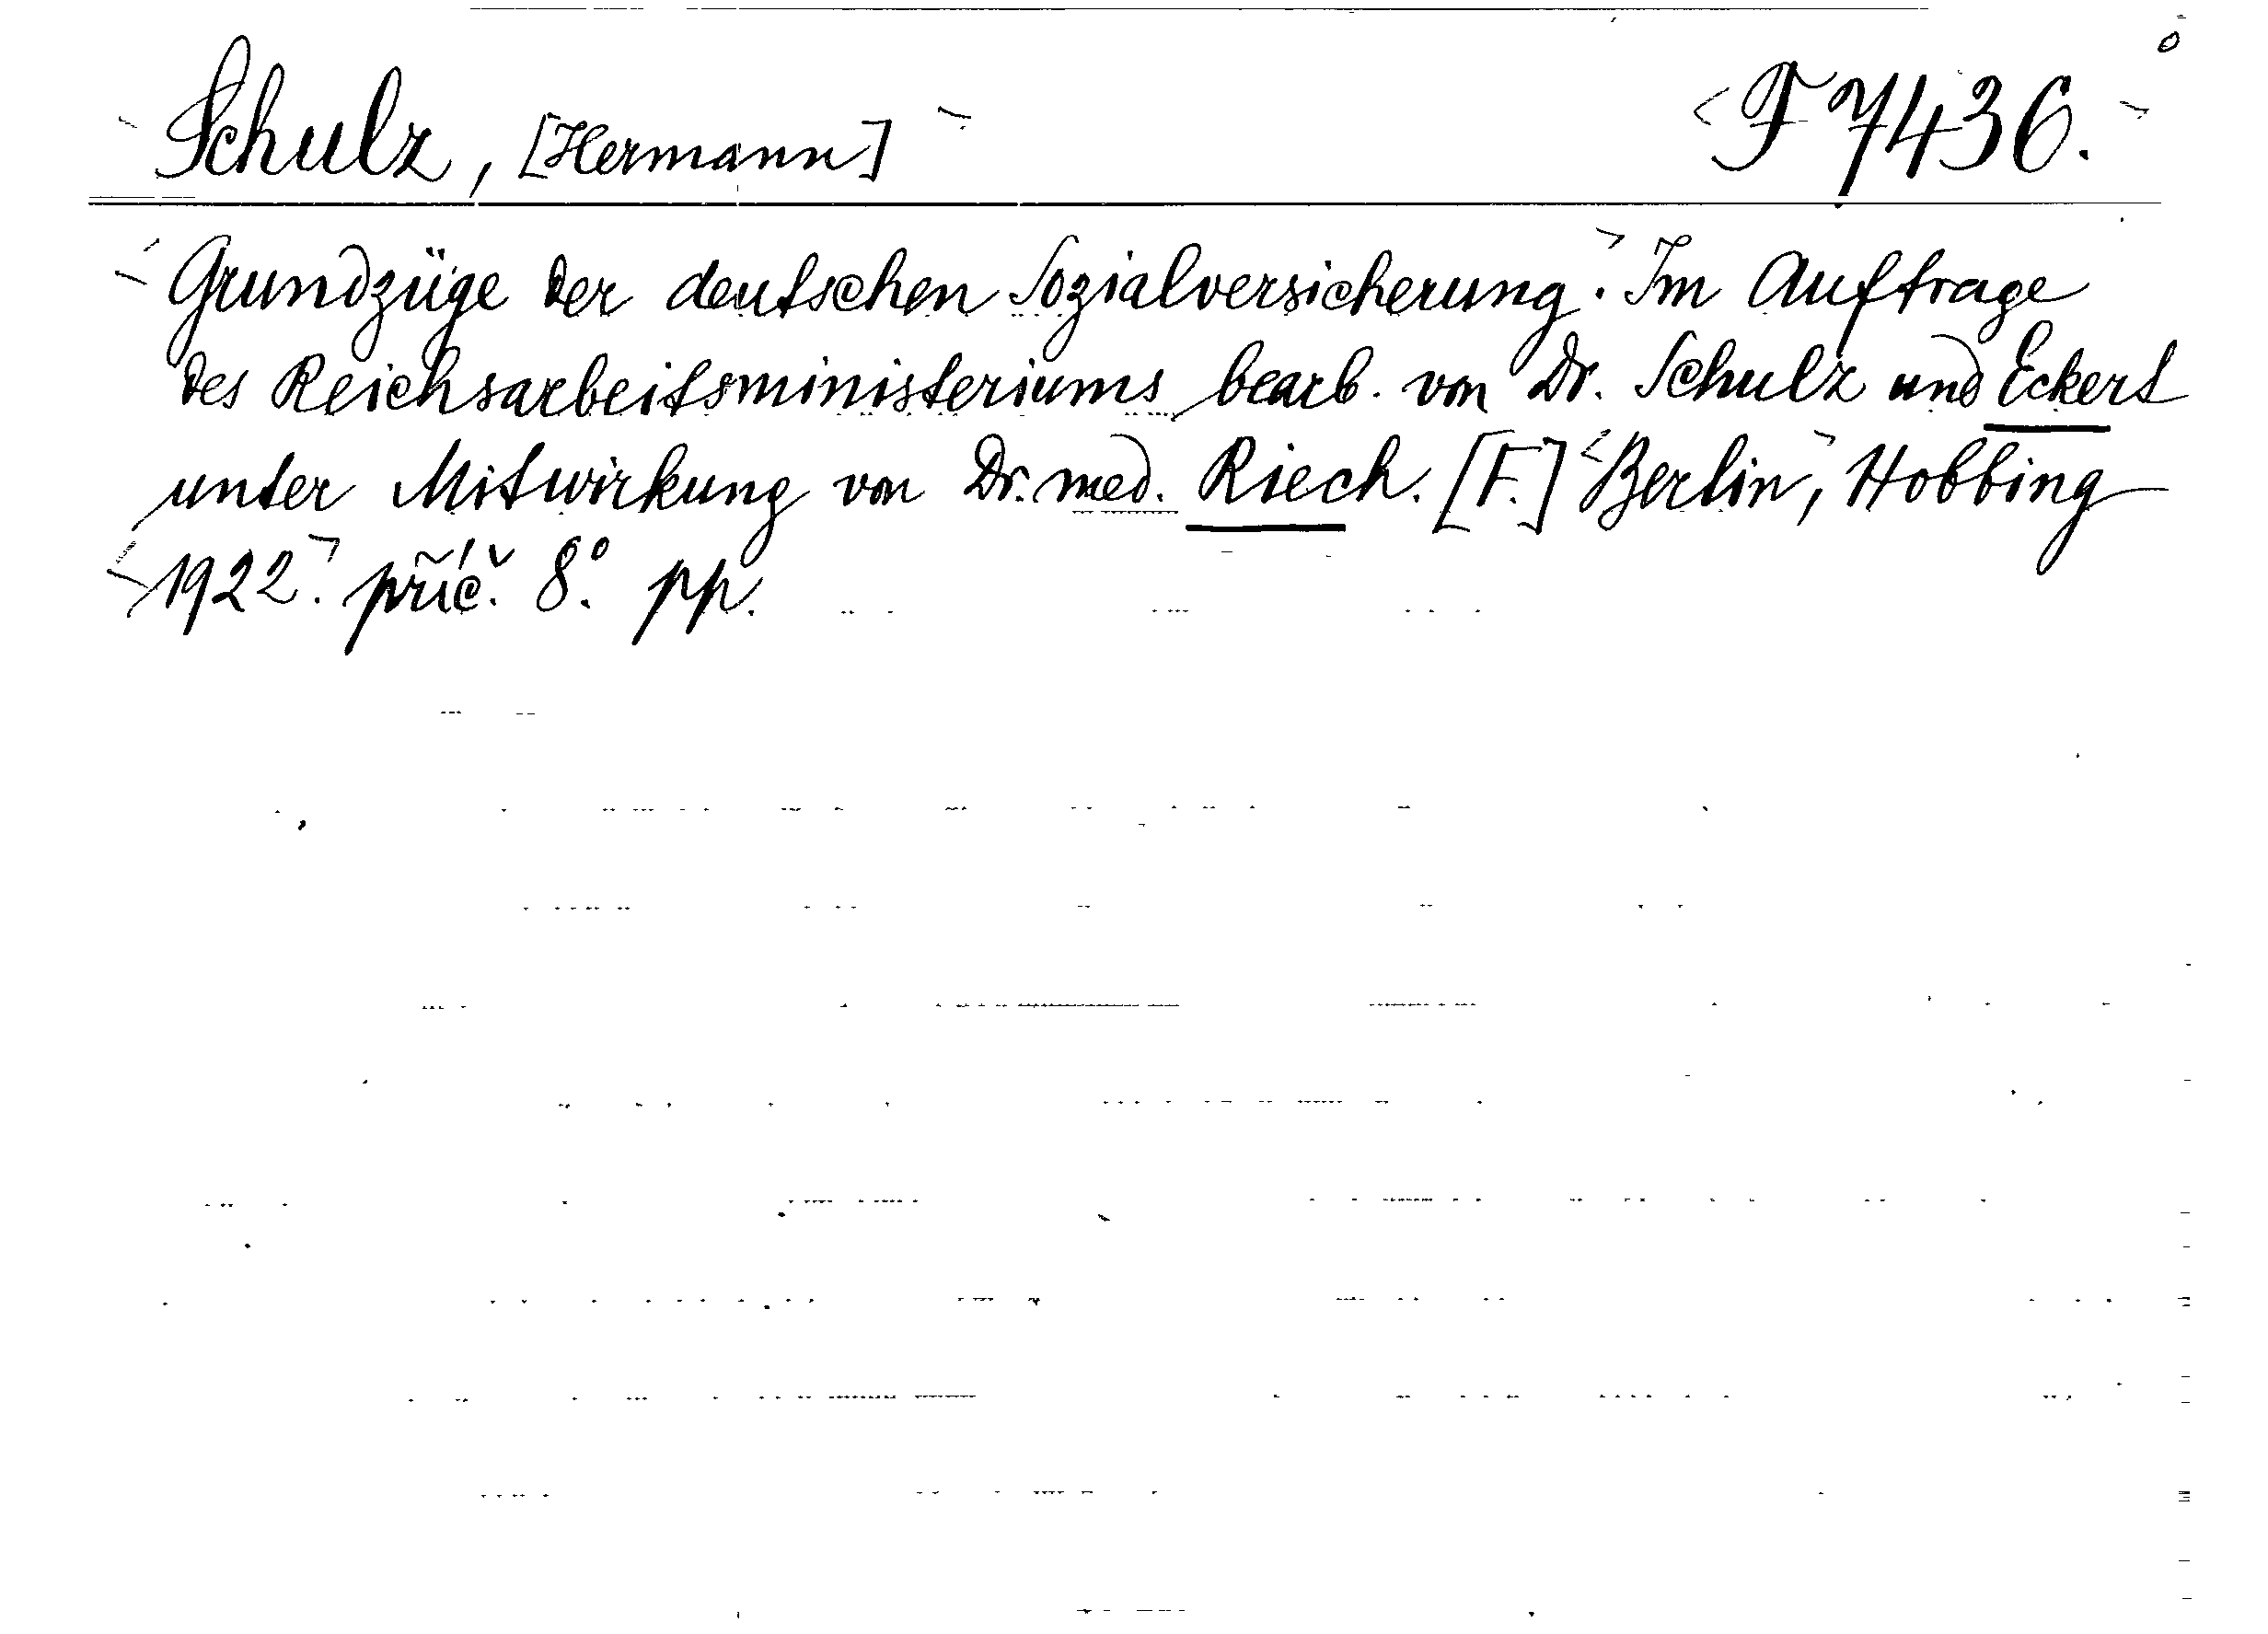 Schulz, [Hermann] F 7436.
Grundzüge der deutschen Sozialversicherung. Im Auftrage
des Reichsarbeitsministeriums bearb. von Dr. Schulz und Eckert
unter Mitwirkung von Dr. med. Riech. [F.] Berlin, Hobbing
1922. příč. 8° pp.